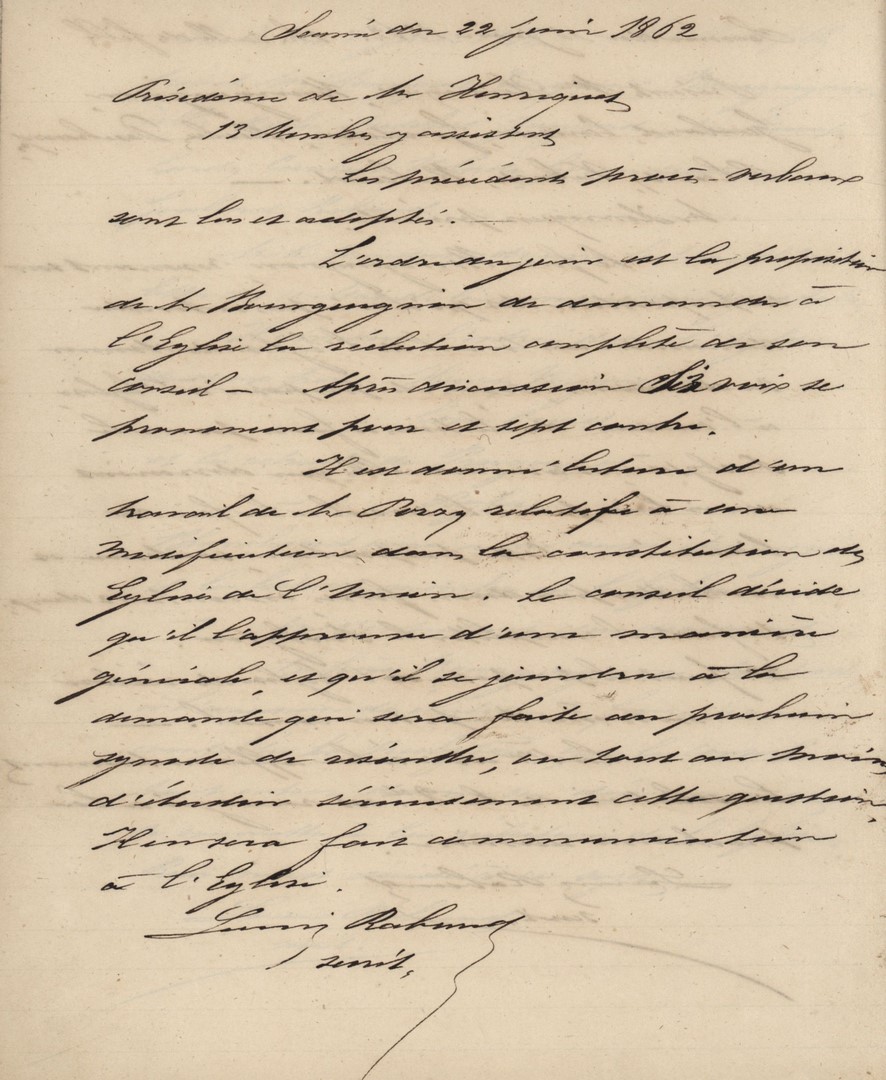 Séance du 22 juin 1862
Présidence de Mr Henriquet
13 Membres y assistent
Les précédents procès-verbaux
sont lus et adoptés. —
L'ordre du jour est la proposition
de Mr Bourguignon de demander à
l'Eglise la réélection complète de son
Conseil — Après discussion Six voix se
prononcent pour et sept contre.
Il est donné lecture d'un
travail de Mr relatif à une
modification dans la constitution des
Eglises de l'Union. Le conseil décide
qu'il l'approuve d'une manière
générale, et qu'il se joindra à la
demande qui sera faite au prochain
synode de résoudre, ou tout au moins
d'étudier sérieusement cette question.
Il en sera fait communication
à l'Eglise.
Louis Rabaud
secrét.